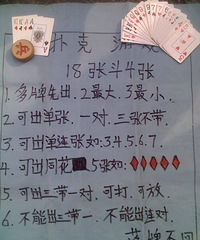 扑克游戏
18张斗4张
1.多牌先出.2最大.3最小.
2.可出单张.一对.三张不带.
3.可出单连张如:3.4.5.6.7.
4.可出同花 5张如:
5.可出三带一对.可打.可放.
6.不能出三带一.不能出连对.